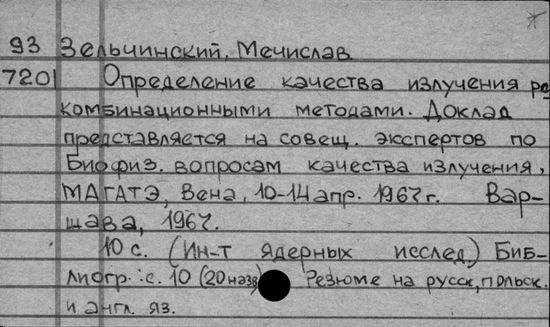 93 Зельчинский, Мечислав
7201 Определение качества излучения ре
комбинационными методами. Доклад
представляется на совещ. экспертов по
Биофиз. вопросам качества излучения,
МАГАТЭ, Вена, 10-14 апр. 1967 г. Вар-
шава, 1967.
10 с. (Ин-т ядерных исслед.) Биб-
лиогр.: с. 10 (20 назв) Резюме на русск, польск.
и англ. яз.